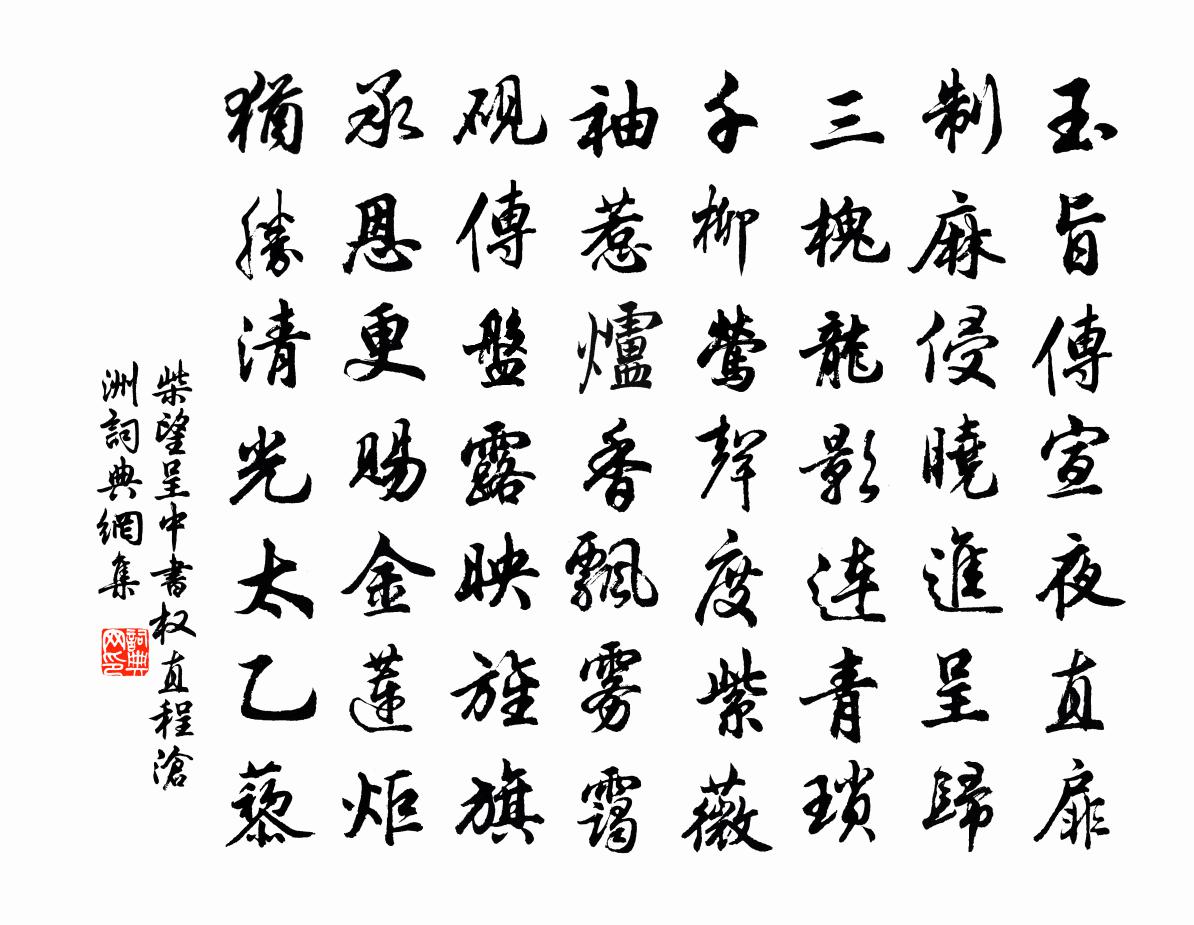 玉旨傳宣夜直扉
制麻侵曉進呈歸
三槐龍影連青瑣
千柳鶯聲度紫薇
袖惹爐香飄雾靄
硯傳盤露映旌旗
承恩更賜金蓮炬
猶勝清光太乙藜
柴望呈中書权直程滄
洲詞典網集
詞典网印